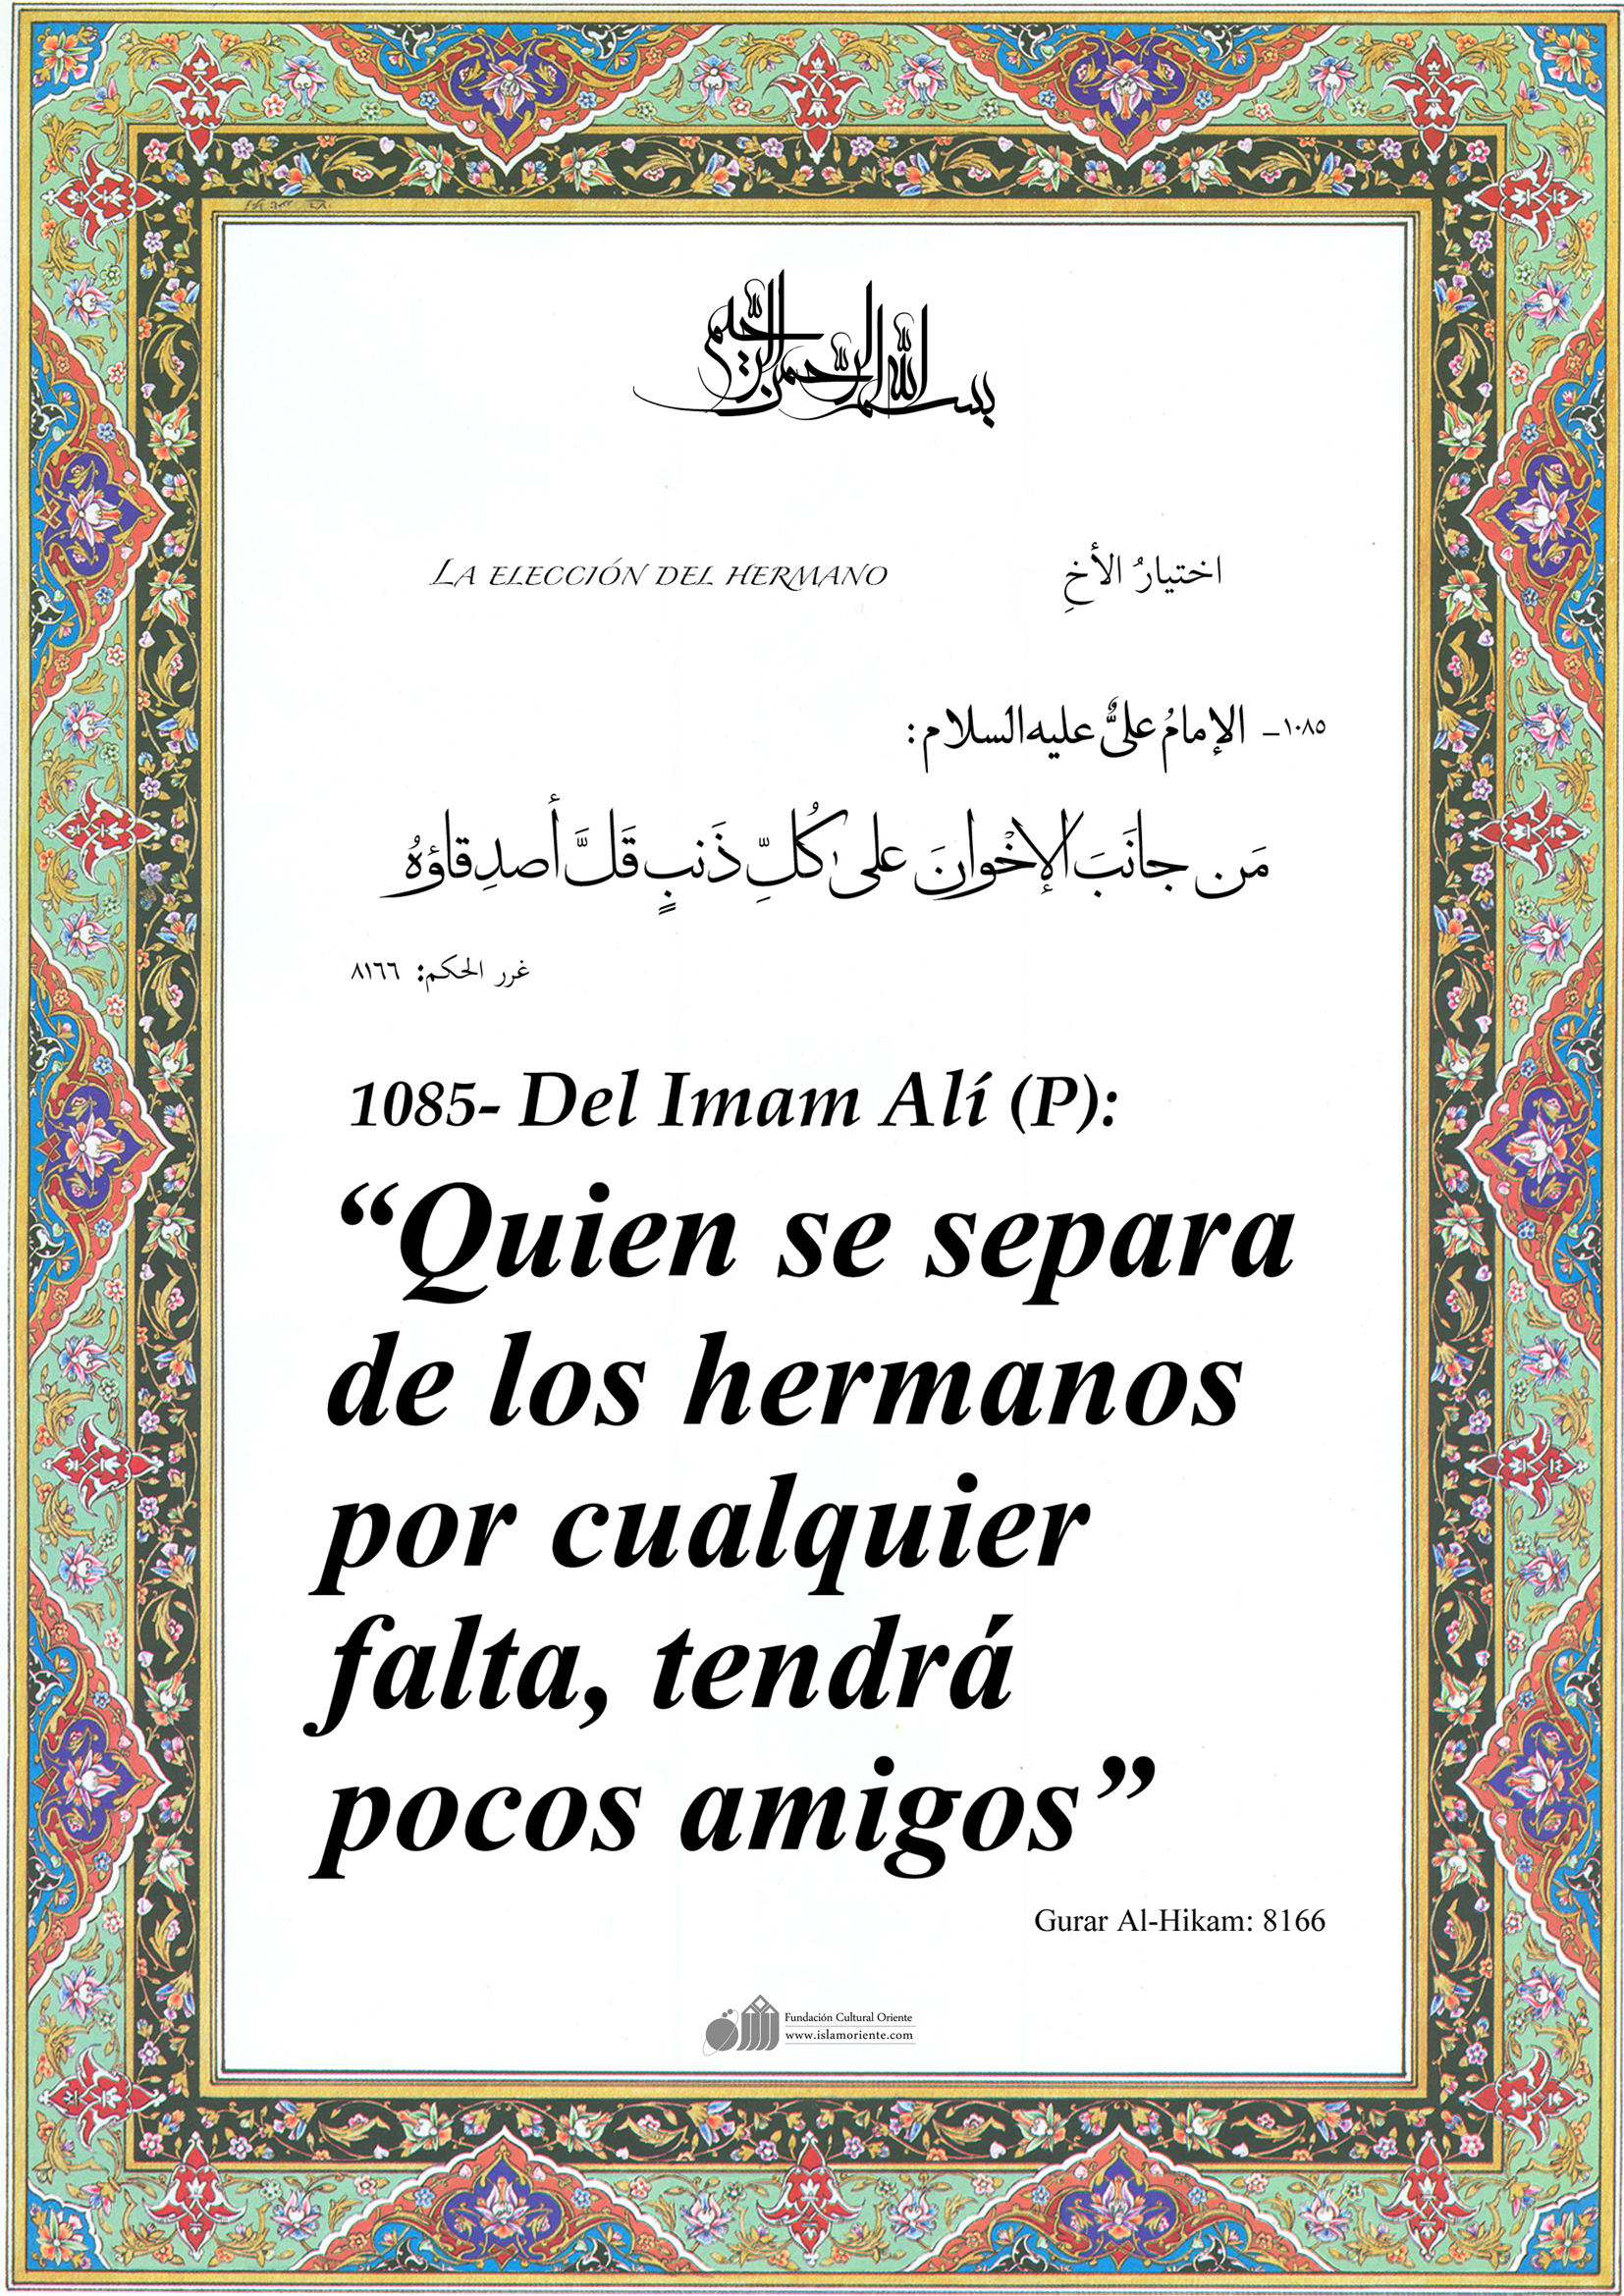 بسم الله الرحمن الرحيم
LA ELECCIÓN DEL HERMANO
اختيارُ الأخِ
١٠٨٥ـ الإمامُ عليٌّ عليه السلام:
مَن جانَبَ الإخْوانَ على كُلِّ ذَنبٍ قَلَّ أصدِقاؤهُ
غرر الحكم: ٨١٦٦
1085- Del Imam Alí (P):
“Quien se separa
de los hermanos
por cualquier
falta, tendrá
pocos amigos”
Gurar Al-Hikam: 8166
Fundación Cultural Oriente
www.islamoriente.com